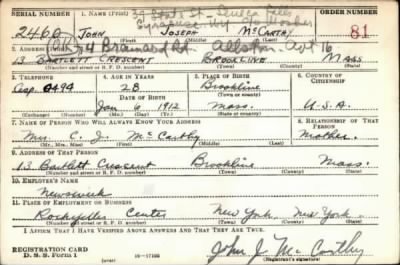 SERIAL NUMBER 1. NAME (Print) 29 East St. Seneca Falls
Syracuse N.Y. c/o Mosher
2460 JOHN JOSEPH McCARTHY 81
(First) (Middle) (Last)
2. ADDRESS (Print) 4 Brainard Rd. Allston Apt 16
13 BARTLETT CRESCENT BROOKLINE MASS
(Number and street or R. F. D. number) (Town) (County) (State)
3. TELEPHONE 4. AGE IN YEARS 5. PLACE OF BIRTH 6. COUNTRY OF CITIZENSHIP
Asp. 0494 28 Brookline
DATE OF BIRTH (Town or county)
Jan 6 1912 Mass. U.S.A.
(Exchange) (Number) (Mo.) (Day) (Yr.) (State or country)
7. NAME OF PERSON WHO WILL ALWAYS KNOW YOUR ADDRESS 8. RELATIONSHIP OF THAT PERSON
Mrs. C. J. McCarthy Mother.
(Mr., Mrs., Miss) (First) (Middle) (Last)
9. ADDRESS OF THAT PERSON
13 Bartlett Crescent Brookline Mass.
(Number and street or R. F. D. number) (Town) (County) (State)
10. EMPLOYER'S NAME
Newsweek
11. PLACE OF EMPLOYMENT OR BUSINESS
Rockefeller Center New York New York
(Number and street or R. F. D. number) (Town) (County) (State)
I AFFIRM THAT I HAVE VERIFIED ABOVE ANSWERS AND THAT THEY ARE TRUE.
REGISTRATION CARD
D. S. S. Form 1 16-17105 John J. McCarthy
(over) (Registrant's signature)